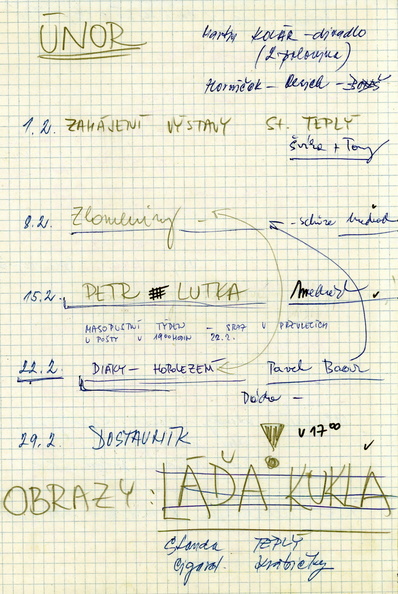 ÚNOR
Martin KOLÁŘ - divadlo
(2. polovina)
Horníček -
1.2. ZAHÁJENÍ VÝSTAVY ST. TEPLÝ
Švika + Tony
8.2. Zlomeniny - - schůze
15.2. PETR LUTKA
MASOPUSTNÍ TÝDEN - SRAZ V PŘEVLECÍCH
U POŠTY V 19 00 HODIN 22.2.
22.2. DIÁKY - HOROLEZEMÍ Pavel Bauer
29.2. DOSTAVNÍK
V 17 00
OBRAZY: LÁĎA KUKLA
Standa TEPLÝ
Cigaret. krabičky